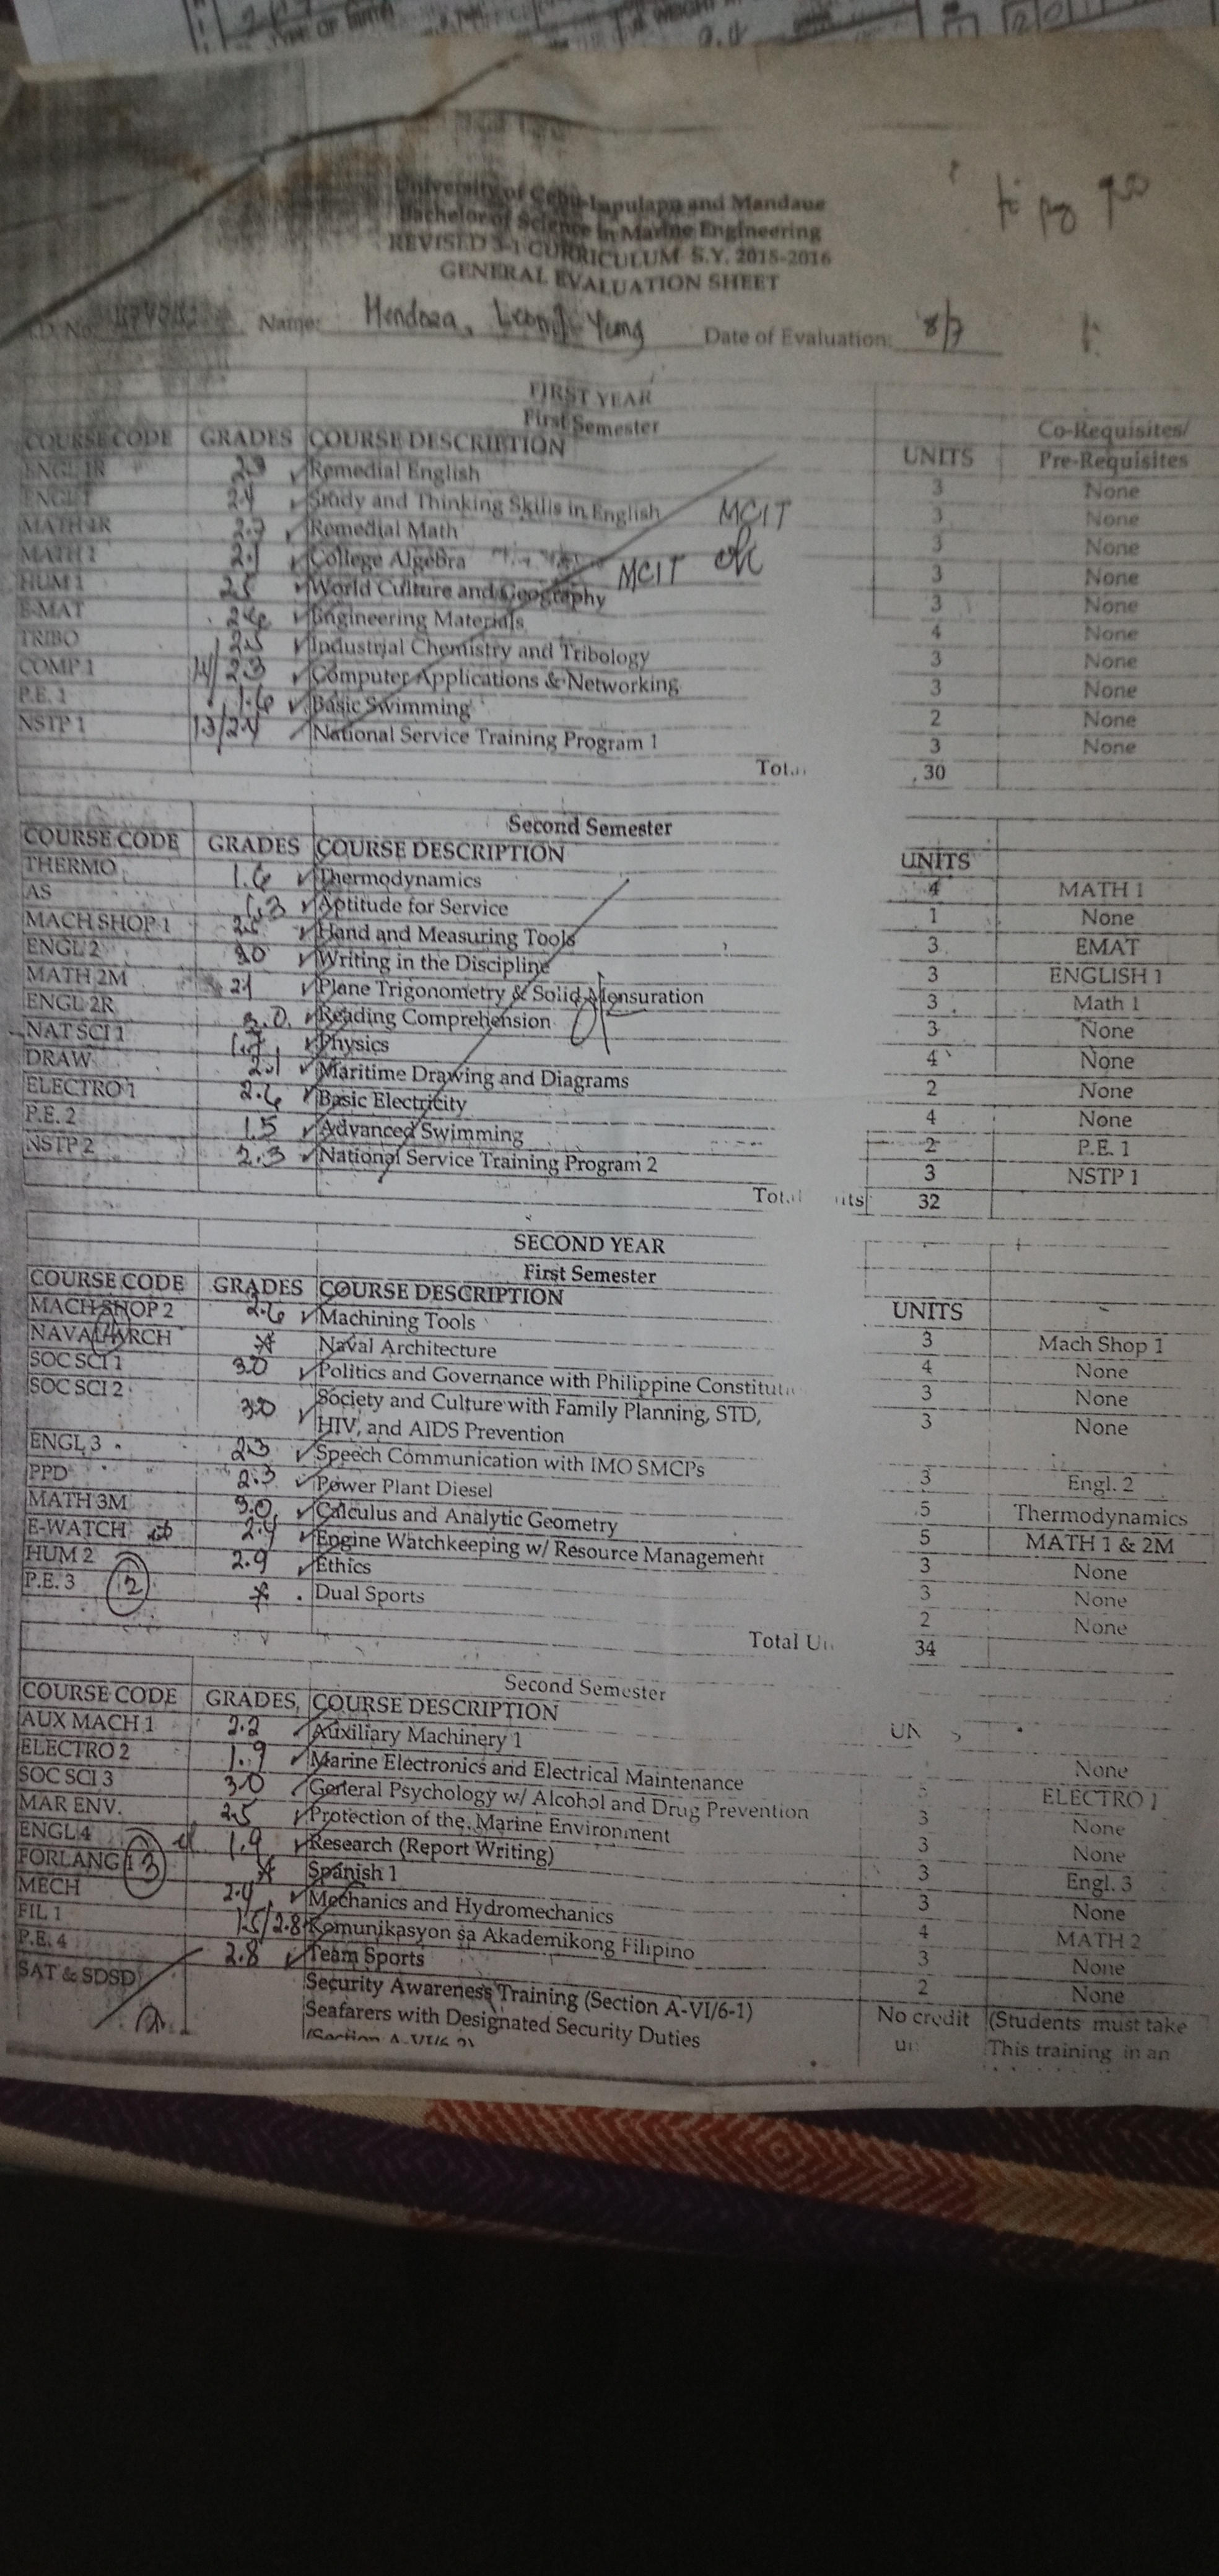 TYPE OF
University of Cebu-Lapulapu and Mandaue
Bachelor of Science in Marine Engineering
REVISED 3-1 CURRICULUM S.Y. 2015-2016
GENERAL EVALUATION SHEET
Name: Mendoza, Yung Date of Evaluation: 8/7
FIRST YEAR
First Semester
COURSE CODE GRADES COURSE DESCRIPTION UNITS Co-Requisites/ Pre-Requisites
ENGL 1R 2.3 Remedial English 3 None
ENGL 1 2.4 Study and Thinking Skills in English 3 None
MCIT
MATH 1R 2.7 Remedial Math 3 None
MATH 1 2.1 College Algebra 3 None
MCIT ok
HUM 1 2.5 World Culture and Geography 3 None
E-MAT 2.6 Engineering Materials 4 None
TRIBO 2.5 Industrial Chemistry and Tribology 3 None
COMP 1 2.3 Computer Applications & Networking 3 None
P.E. 1 1.6 Basic Swimming 2 None
NSTP 1 13/2.4 National Service Training Program 1 3 None
30
Second Semester
COURSE CODE GRADES COURSE DESCRIPTION UNITS
THERMO 1.6 Thermodynamics 4 MATH 1
AS 1.3 Aptitude for Service 1 None
MACH SHOP 1 Hand and Measuring Tools 3 EMAT
ENGL 2 3.0 Writing in the Discipline 3 ENGLISH 1
MATH 2M 2.1 Plane Trigonometry & Solid Mensuration 3 Math 1
ENGL 2R 3.0 Reading Comprehension 3 None
NAT SCI 1 1.7 Physics 4 None
DRAW 2.1 Maritime Drawing and Diagrams 2 None
ELECTRO 1 2.6 Basic Electricity 4 None
P.E. 2 1.5 Advanced Swimming 2 P.E. 1
NSTP 2 2.3 National Service Training Program 2 3 NSTP 1
32
SECOND YEAR
First Semester
COURSE CODE GRADES COURSE DESCRIPTION UNITS
MACH SHOP 2 2.6 Machining Tools 3 Mach Shop 1
NAVAL ARCH * Naval Architecture 4 None
SOC SCI 1 3.0 Politics and Governance with Philippine Constitut 3 None
SOC SCI 2 3.0 Society and Culture with Family Planning, STD, 3 None
HIV, and AIDS Prevention
ENGL 3 2.3 Speech Communication with IMO SMCPs 3 Engl. 2
PPD 2.3 Power Plant Diesel 5 Thermodynamics
MATH 3M 3.0 Calculus and Analytic Geometry 5 MATH 1 & 2M
E-WATCH 2.4 Engine Watchkeeping w/ Resource Management 3 None
HUM 2 2.9 Ethics 3 None
P.E. 3 2 * Dual Sports 2 None
Total 34
Second Semester
COURSE CODE GRADES COURSE DESCRIPTION UN
AUX MACH 1 2.2 Auxiliary Machinery 1 None
ELECTRO 2 1.9 Marine Electronics and Electrical Maintenance 5 ELECTRO 1
SOC SCI 3 3.0 General Psychology w/ Alcohol and Drug Prevention 3 None
MAR ENV. 2.5 Protection of the Marine Environment 3 None
ENGL 4 1.9 Research (Report Writing) 3 Engl. 3
FORLANG 1 3 * Spanish 1 3 None
MECH 2.4 Mechanics and Hydromechanics 4 MATH 2
FIL 1 1.5/2.8 Komunikasyon sa Akademikong Filipino 3 None
P.E. 4 2.8 Team Sports 2 None
SAT & SDSD Security Awareness Training (Section A-VI/6-1) No credit (Students must take
Seafarers with Designated Security Duties This training in an